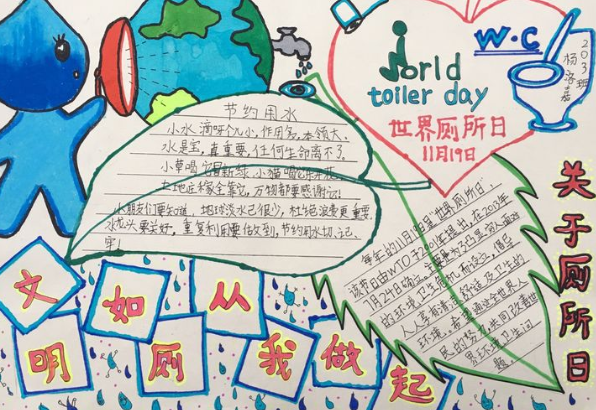 World
toiler day
世界厕所日
11月19日
W·C
203班
关于厕所日
节约用水
小水滴呀个儿小,作用多,本领大。
水是宝,真重要,任何生命离不了。
小草喝它 绿,小猫喝它乐
大地庄稼全靠它,万物都要感谢它。
小朋友们要知道,地球淡水已很少,杜绝浪费更重要,
水龙头要关好,重复利用要做到,节约用水切记
牢!
每年的11月19日是“世界厕所日”,
该节日由WTO于2001年提出,在2013年
7月24日确立,主要是为了 人面对
的环境卫生危机而设立,倡导
人人享有清洁、舒适及卫生的
环境,希望通过全世界人
民的努力,共同改善世
界环境卫生问
题。
文明如厕从我做起